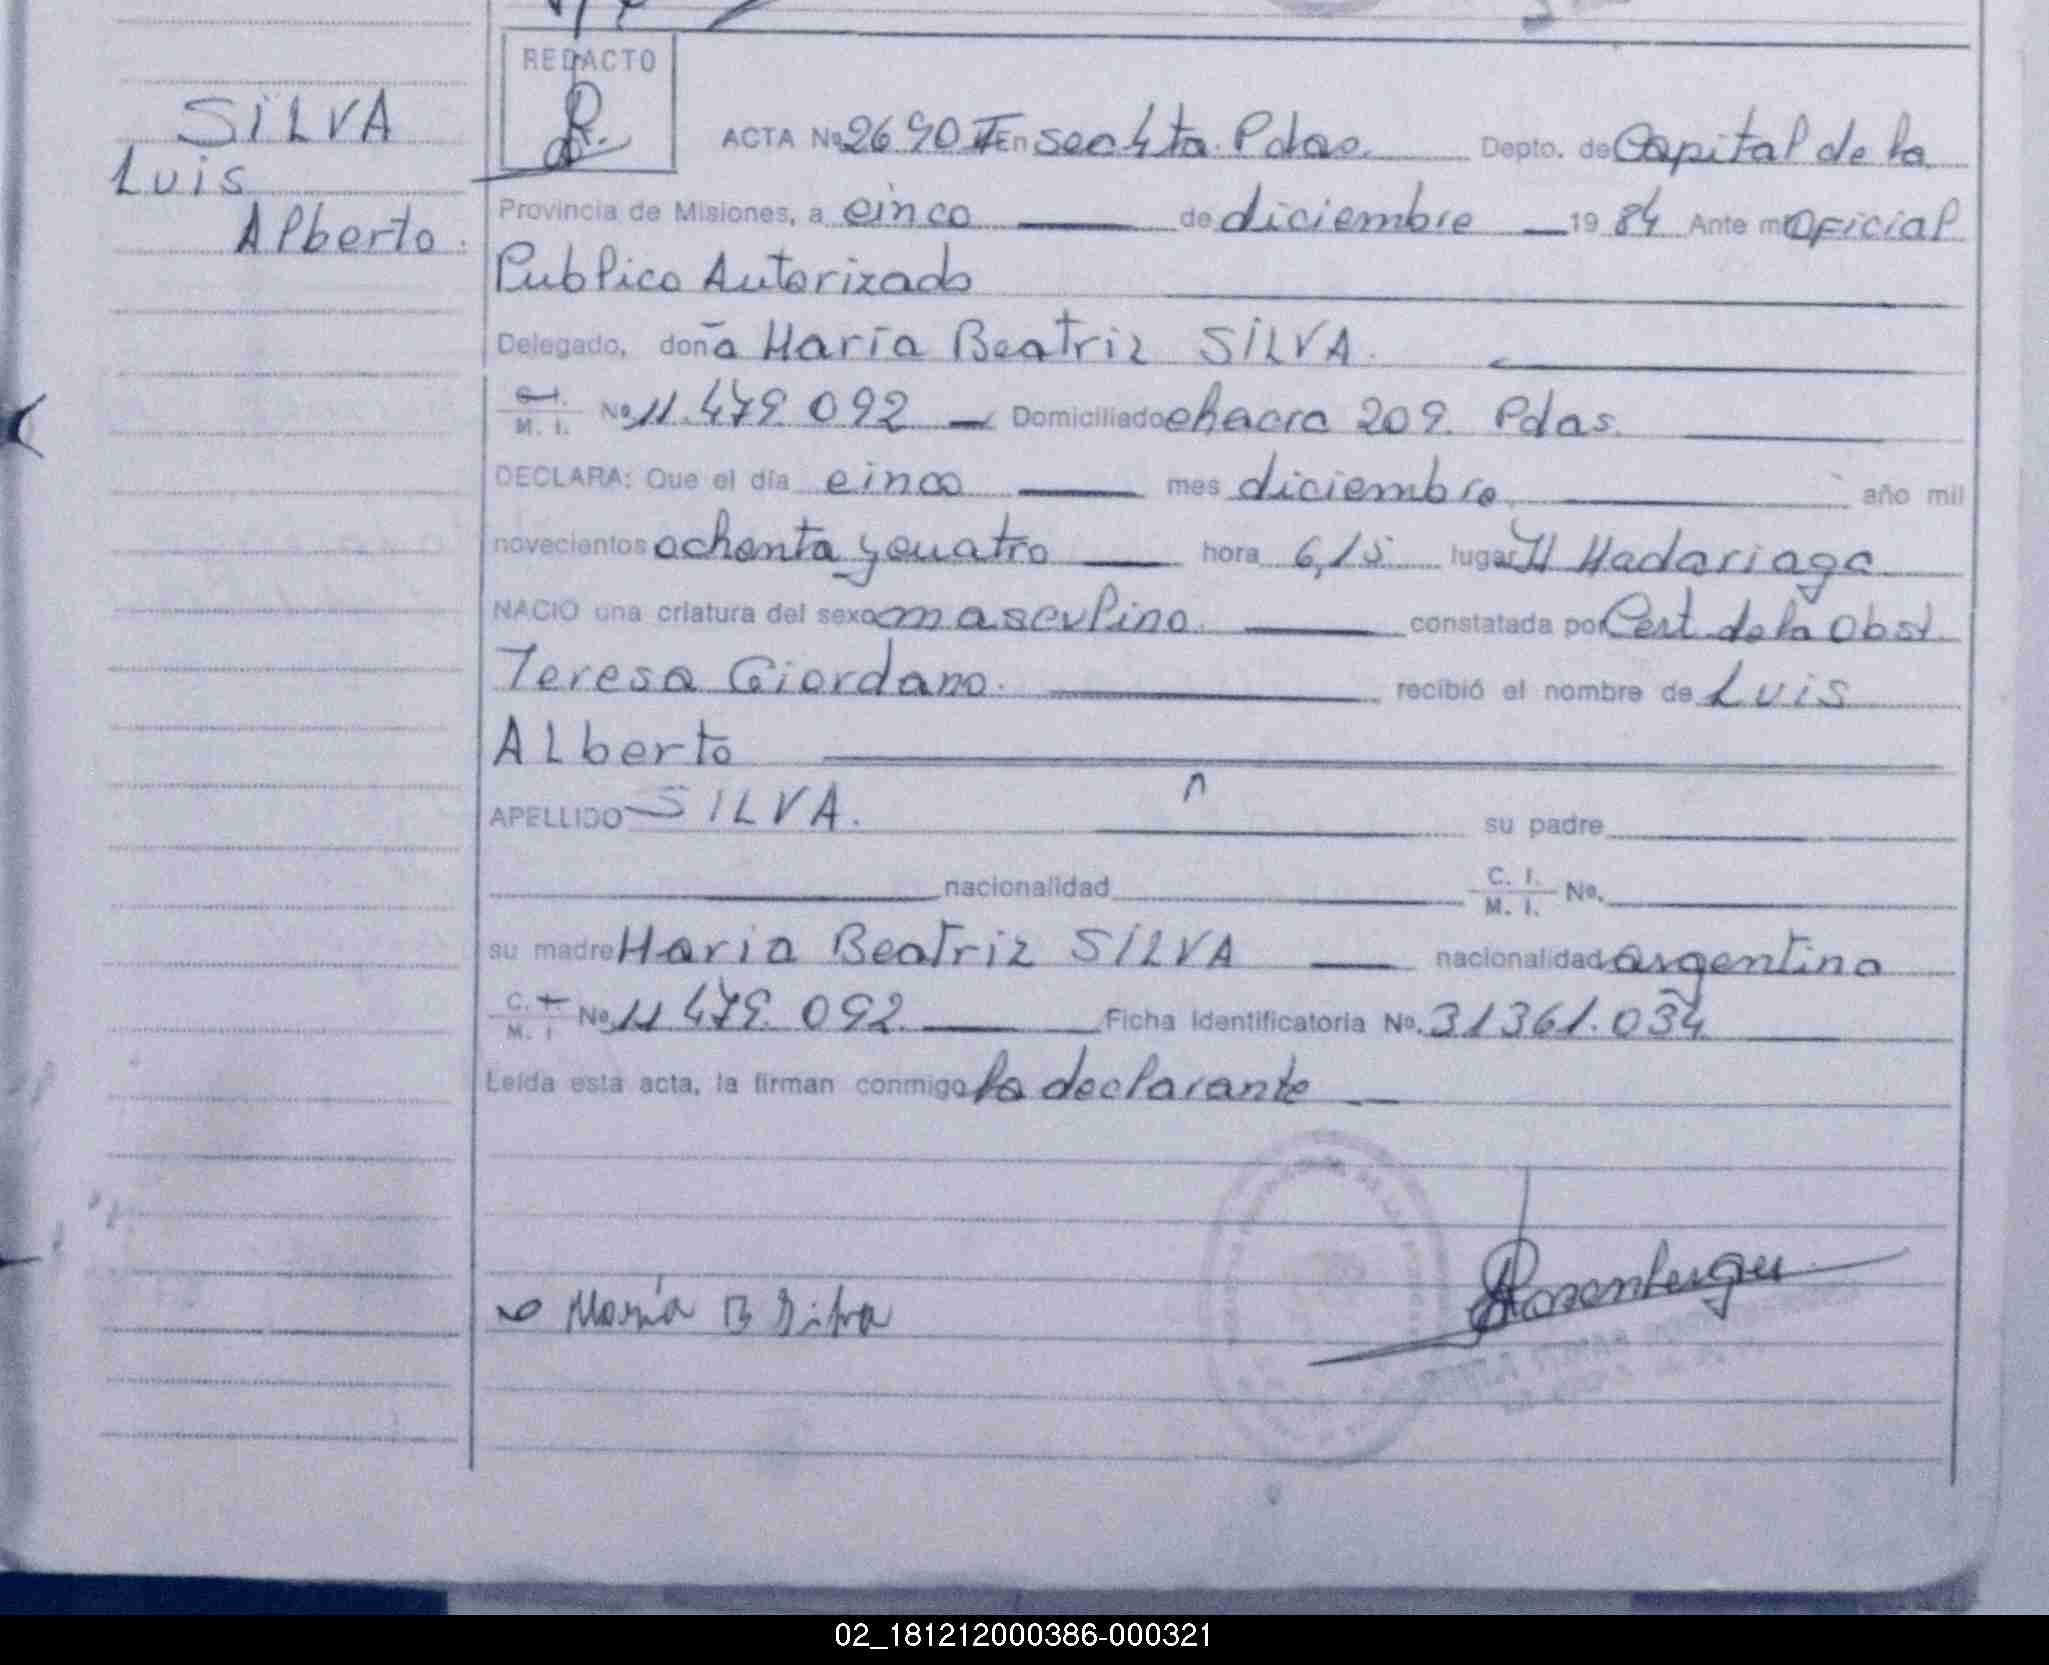 REDACTO
SILVA
Luis
Alberto.
ACTA Nº 2690 En Pdas. Depto. de Capital de la
Provincia de Misiones, a cinco de diciembre 1984 Ante mi Oficial
Publico Autorizado
Delegado, doña María Beatriz SILVA.
C. I.
M. I. Nº 11.479.092 Domiciliado chacra 209. Pdas.
DECLARA: Que el día cinco mes diciembre año mil
novecientos ochenta y cuatro hora 6,15 lugar H Madariaga
NACIO una criatura del sexo masculino constatada por Cert. de la Obst.
Teresa Giordano. recibió el nombre de Luis
Alberto
APELLIDO SILVA. su padre
nacionalidad C. I.
M. I. Nº.
su madre Maria Beatriz SILVA nacionalidad argentina
C. I.
M. I Nº 11 479. 092 Ficha Identificatoria Nº. 31361.034
Leída esta acta, la firman conmigo la declarante
María B Silva
02_181212000386-000321